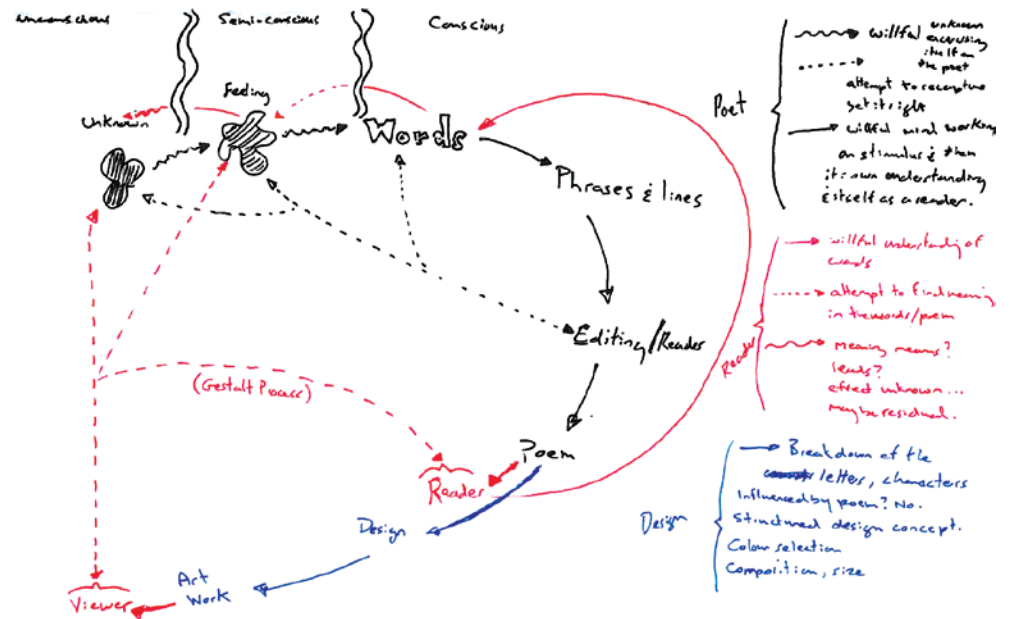 Unconscious
Semi-conscious
Conscious
Unknown
Feeling
Words
Phrases & lines
Editing/Reader
Poem
Reader
(Gestalt Process)
Design
Art
Work
Viewer
Poet
willful unknown
exercising
itself on
the poet
attempt to recapture
get it right
willful mind working
on stimulus & then
its own understanding
& itself as a reader.
Reader
willful understanding of
words
attempt to find meaning
in the words/poem
Meaning means?
leads?
effect unknown...
may be residual.
Design
Breakdown of the
letters, characters
Influenced by poem? No.
Structured design concept.
Colour selection
Composition, size